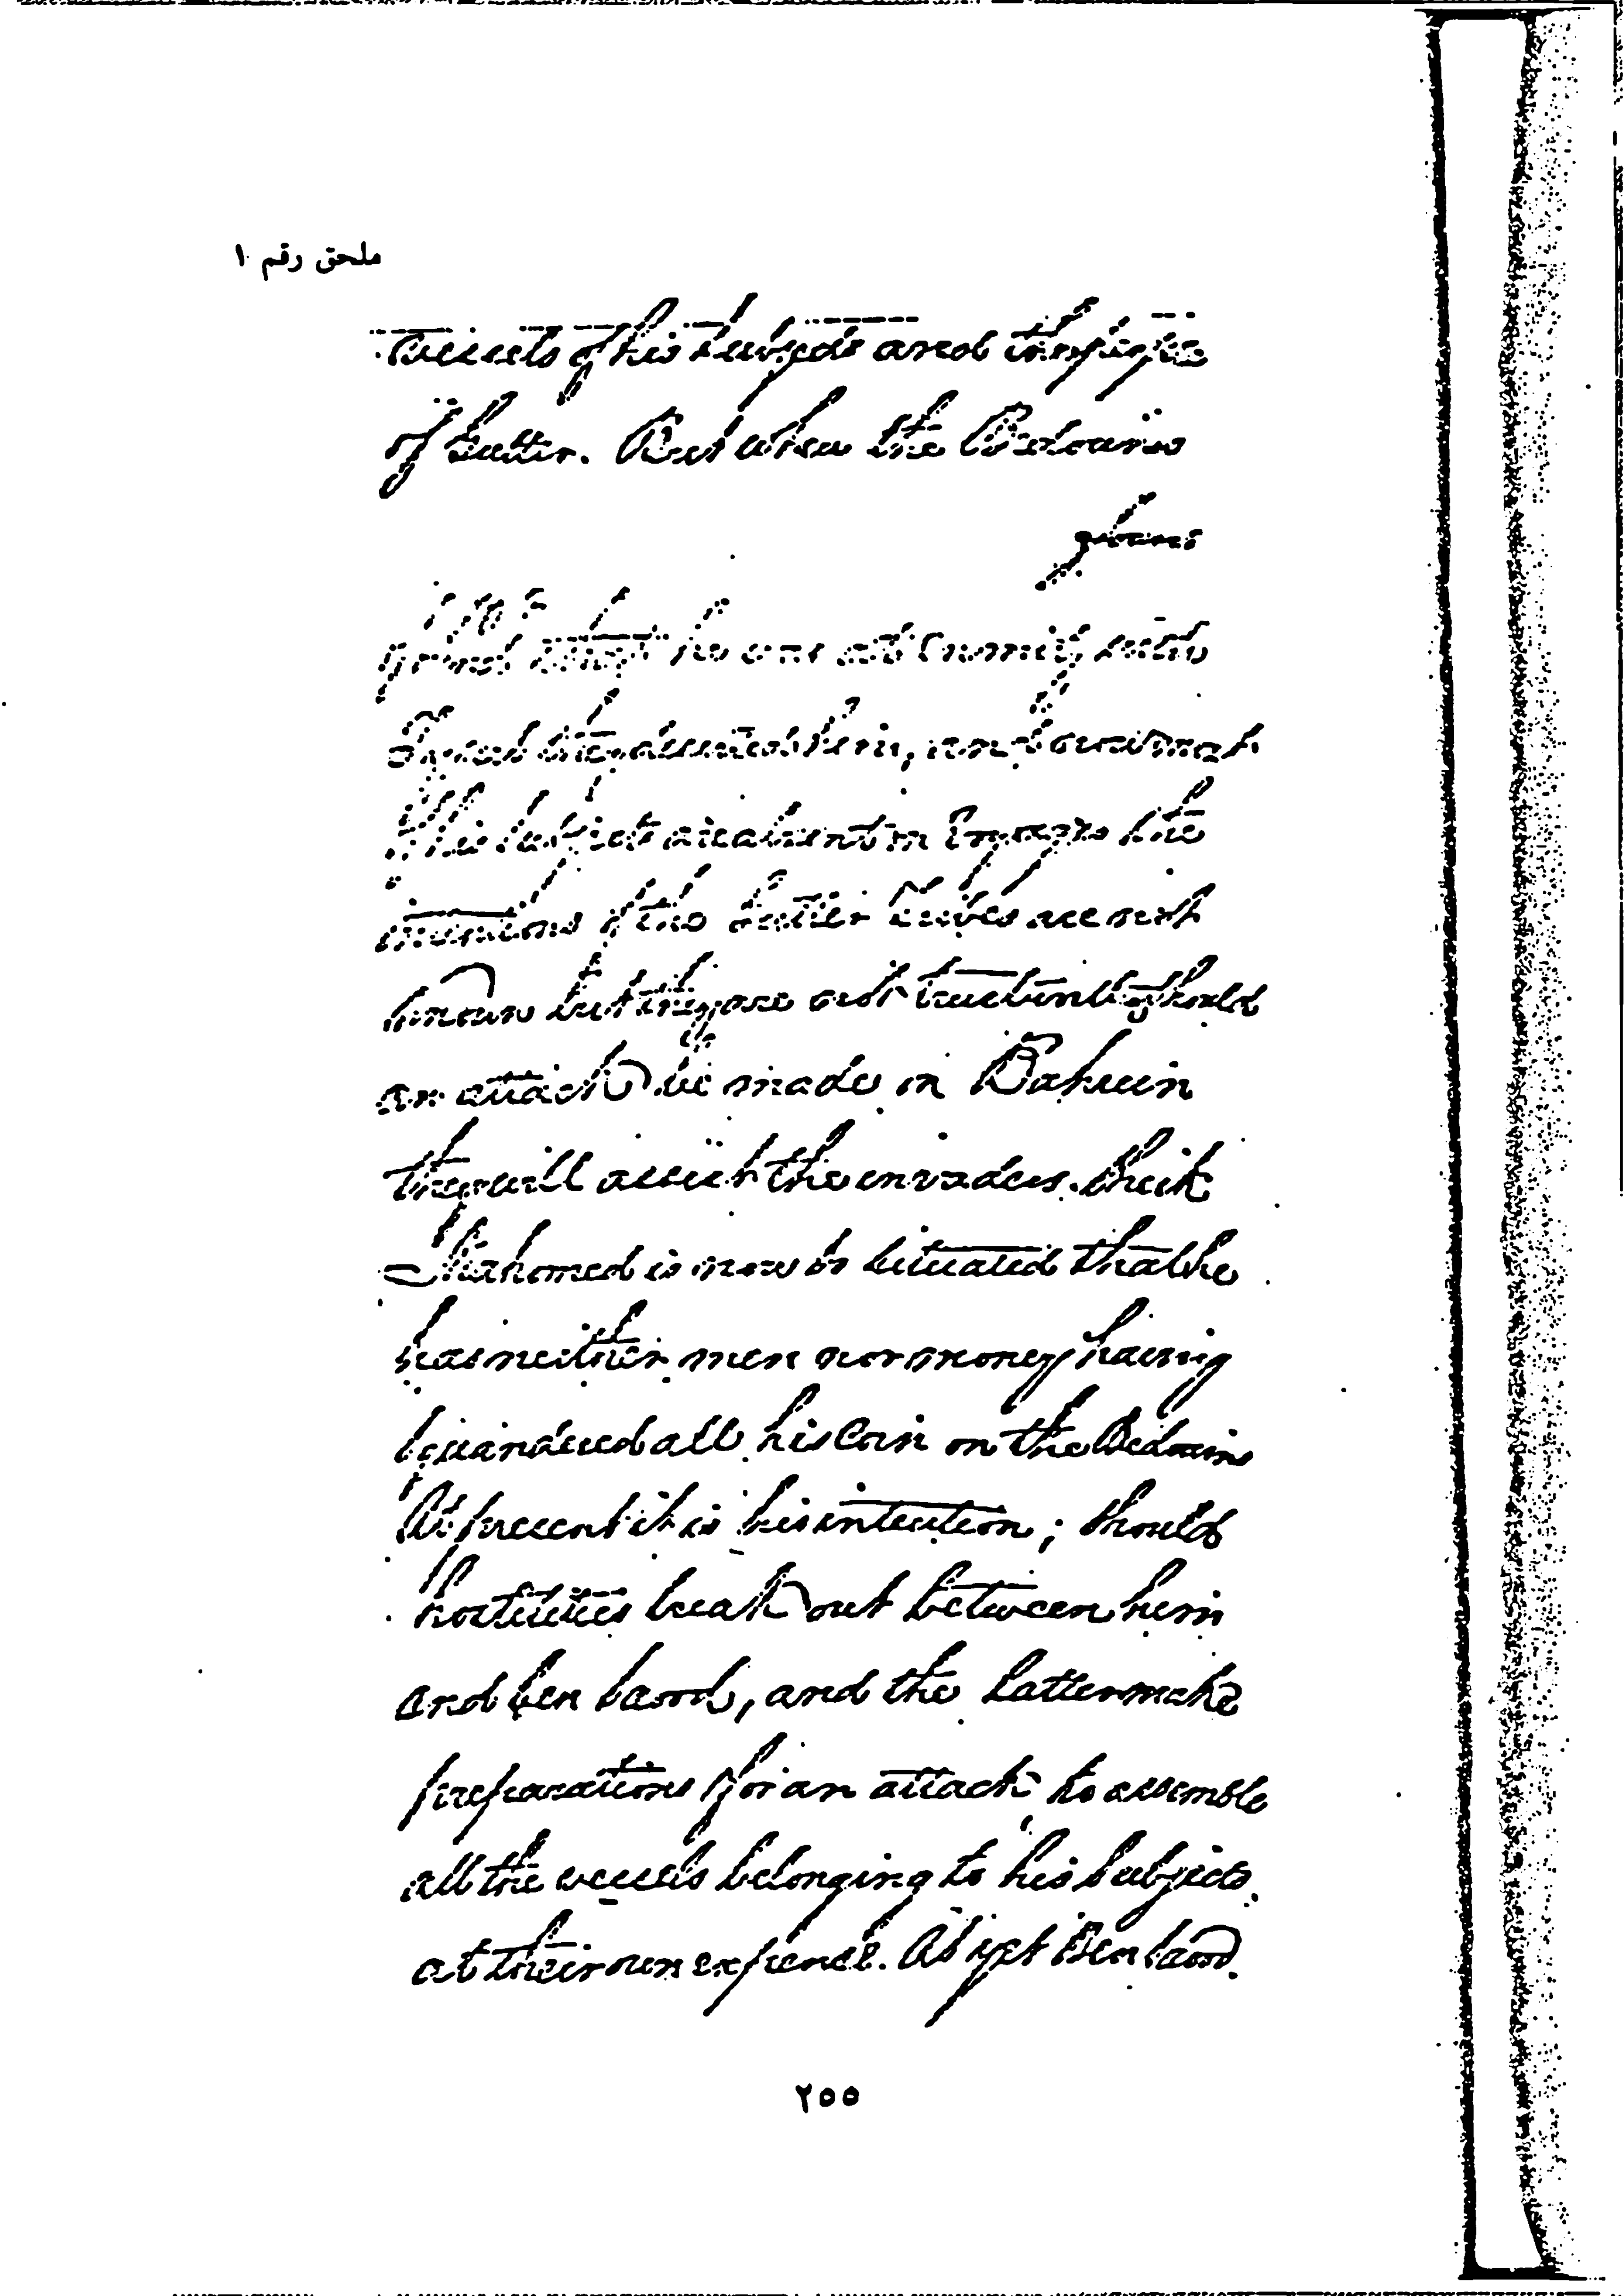 ملحق رقم ١
vessels of his subjects and the people
of Kattir. But when the Bedouins
found that he was at enmity with
him, not so much
his subjects are absent in the
intentions of the Tribes are not
known but they are not trustworthy should
an attack be made in Bahrein
they will assist the invaders. Sheik
Mahomed is now so situated that he
has neither men nor money having
squandered all his Coin on the Bedouins
At present it is his intention; should
hostilities break out between him
and ben Saood, and the latter make
preparations for an attack to assemble
all the vessels belonging to his subjects
at their own expense. As yet Ben Saood
٢٥٥